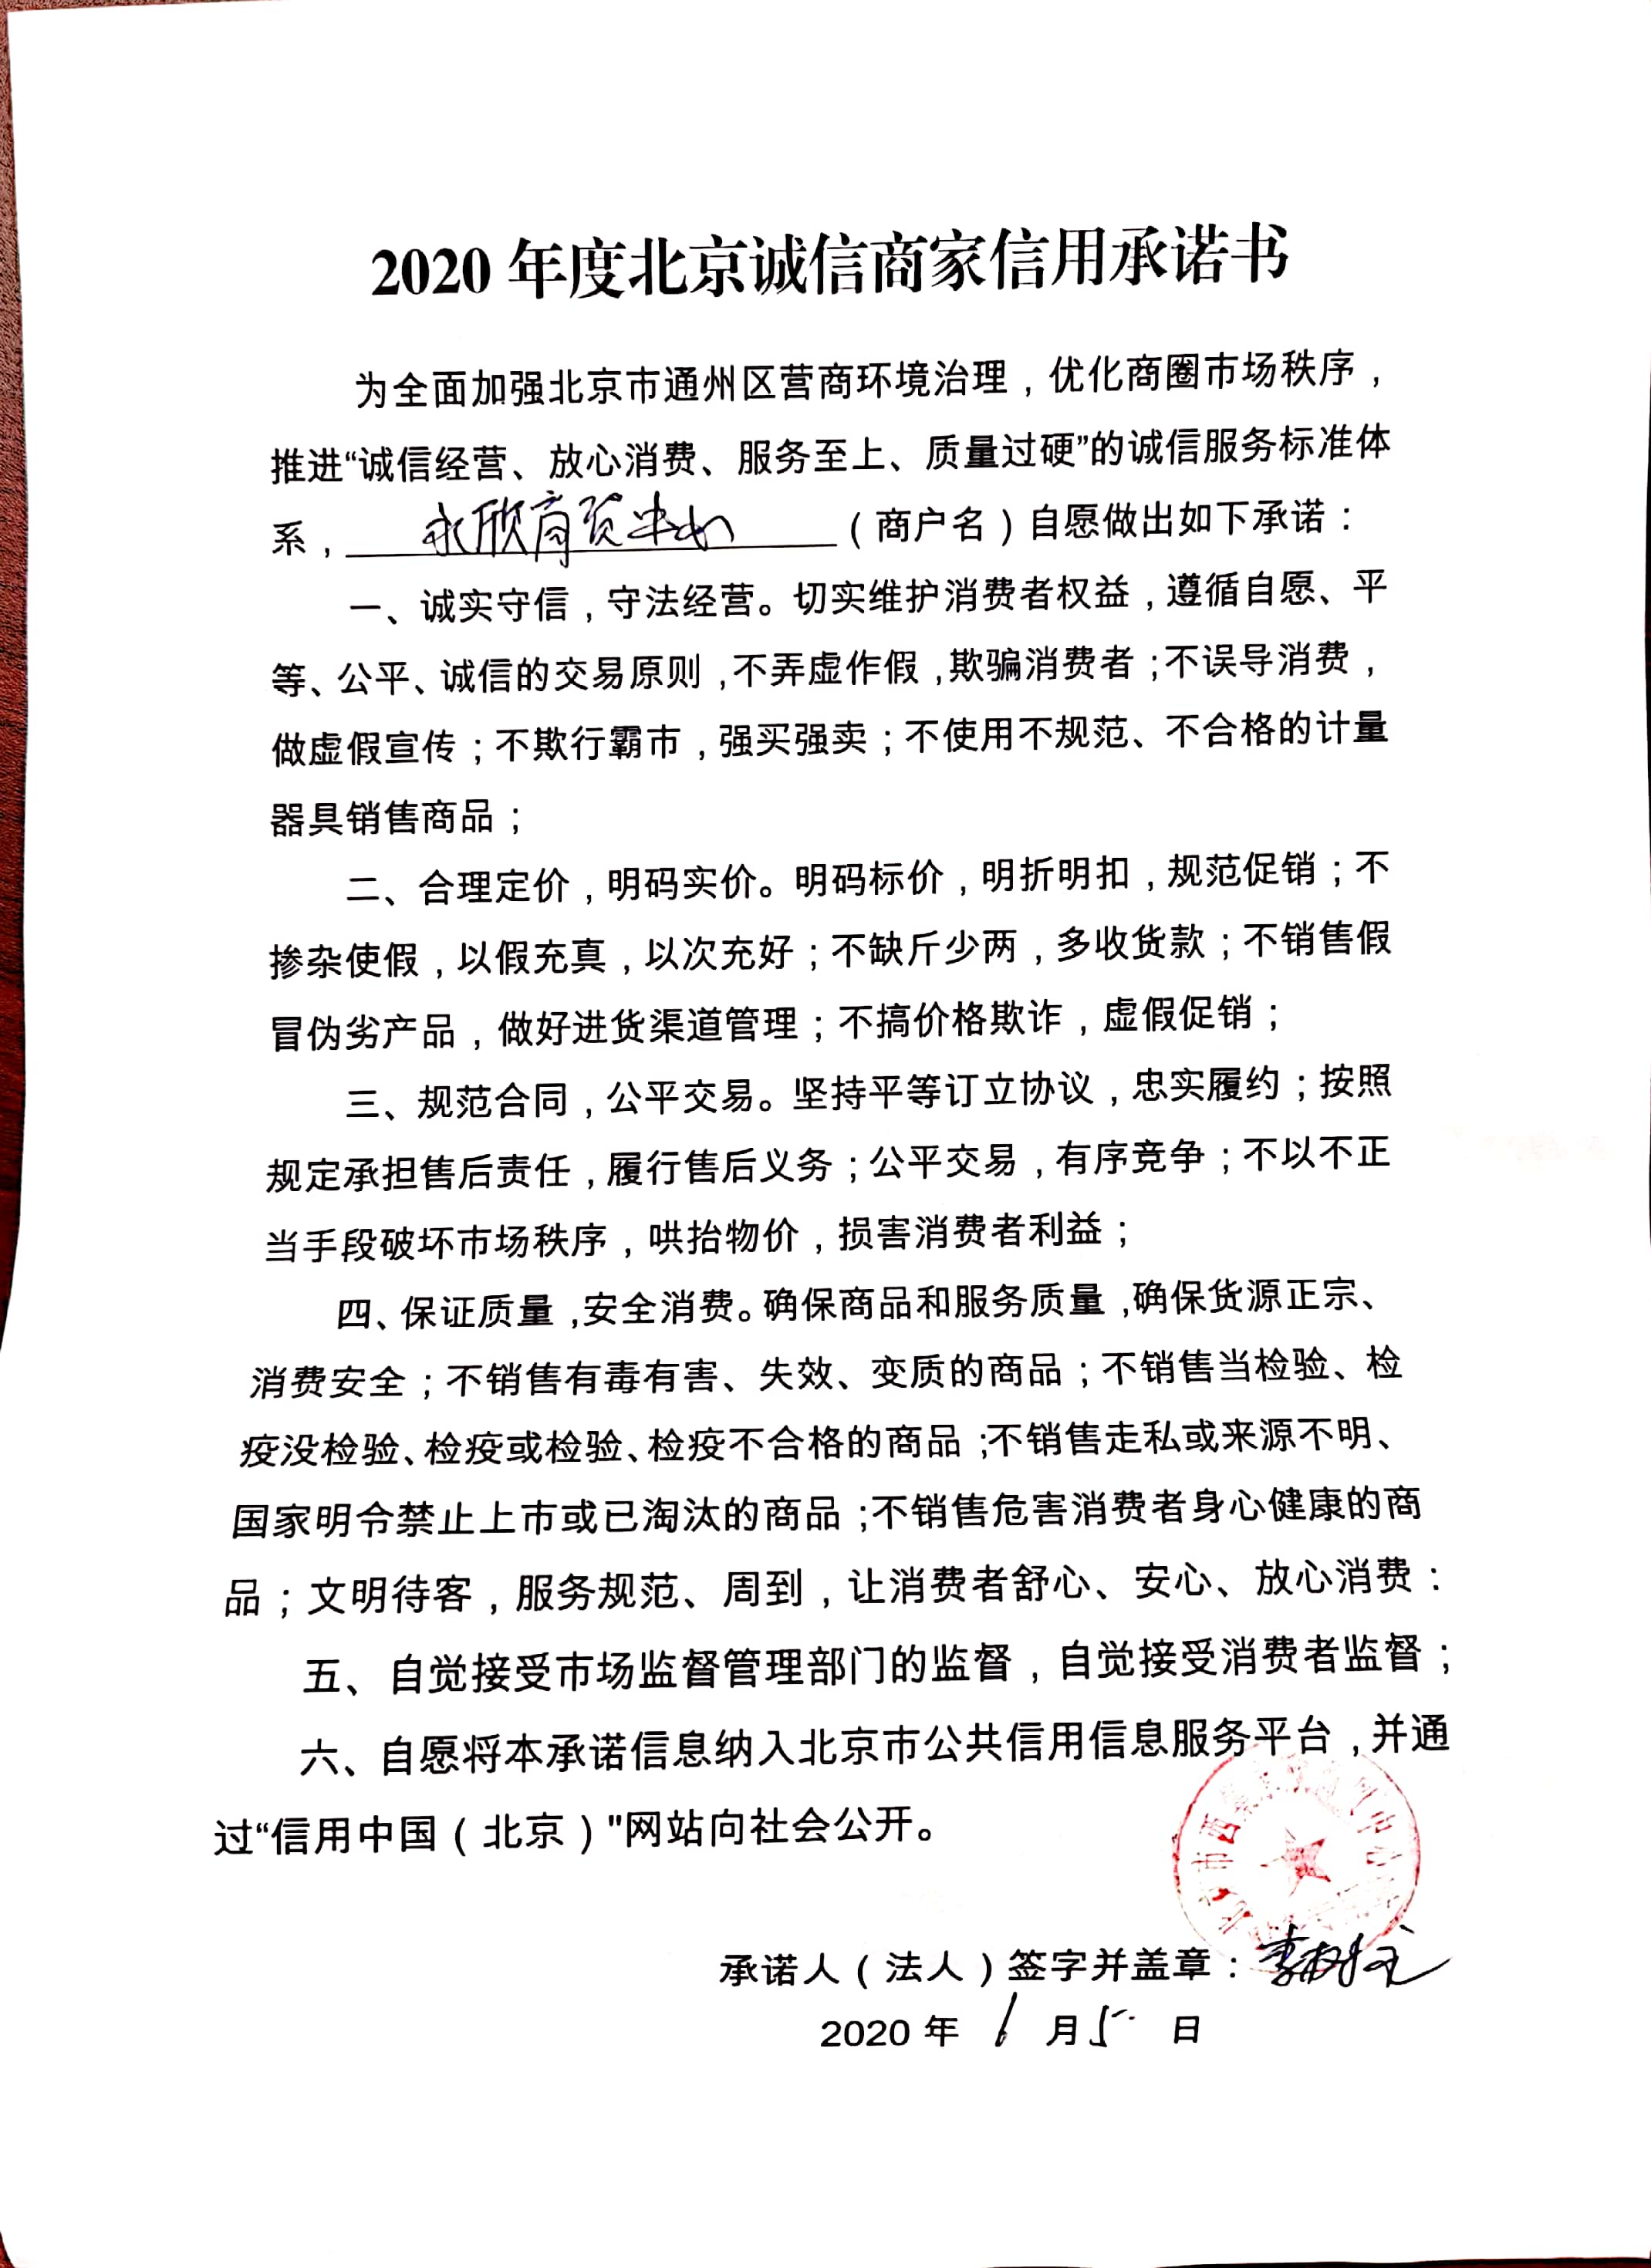 2020 年度北京诚信商家信用承诺书
为全面加强北京市通州区营商环境治理，优化商圈市场秩序，
推进“诚信经营、放心消费、服务至上、质量过硬”的诚信服务标准体
系，永欣商贸中心（商户名）自愿做出如下承诺：
一、诚实守信，守法经营。切实维护消费者权益，遵循自愿、平
等、公平、诚信的交易原则，不弄虚作假，欺骗消费者；不误导消费，
做虚假宣传；不欺行霸市，强买强卖；不使用不规范、不合格的计量
器具销售商品；
二、合理定价，明码实价。明码标价，明折明扣，规范促销；不
掺杂使假，以假充真，以次充好；不缺斤少两，多收货款；不销售假
冒伪劣产品，做好进货渠道管理；不搞价格欺诈，虚假促销；
三、规范合同，公平交易。坚持平等订立协议，忠实履约；按照
规定承担售后责任，履行售后义务；公平交易，有序竞争；不以不正
当手段破坏市场秩序，哄抬物价，损害消费者利益；
四、保证质量，安全消费。确保商品和服务质量，确保货源正宗、
消费安全；不销售有毒有害、失效、变质的商品；不销售当检验、检
疫没检验、检疫或检验、检疫不合格的商品；不销售走私或来源不明、
国家明令禁止上市或已淘汰的商品；不销售危害消费者身心健康的商
品；文明待客，服务规范、周到，让消费者舒心、安心、放心消费：
五、自觉接受市场监督管理部门的监督，自觉接受消费者监督；
六、自愿将本承诺信息纳入北京市公共信用信息服务平台，并通
过“信用中国（北京）"网站向社会公开。
承诺人（法人）签字并盖章：李
2020 年 1 月 5 日